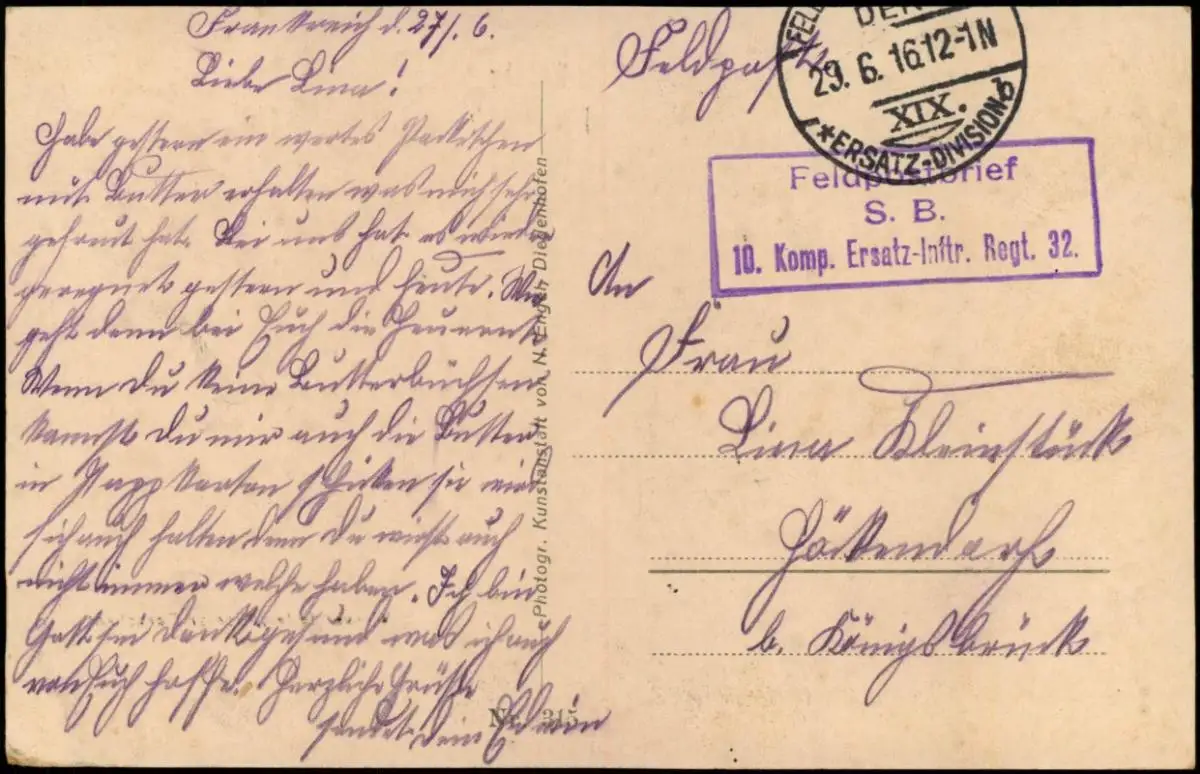 Frankreich d. 27/. 6.
Liebe Lina!
Habe gestern ein wertes Packetchen
mit Butter erhalten was mich sehr
gefreut hat. Bei uns hat es wieder
geregnet gestern und heute. Wie
geht denn bei Euch die Heuernte
Wenn du keine Butterbüchsen
kannst du mir auch die Butter
in Pappkarton schicken sie wird
sich auch halten denn du wirst auch
nicht immer welche haben. Ich bin
Gott sei dank gesund was ich auch
von Euch hoffe. Herzliche Grüße
sendet dein Edwin
Photogr. Kunstanstalt von N. Engel, Diedenhofen
Nr. 315
Feldpost
DER
29. 6. 16 12-1N
XIX.
*ERSATZ-DIVISION b
Feldpostbrief
S. B.
10. Komp. Ersatz-Inftr. Regt. 32.
An
Frau
Lina Kleinstück
Höckendorf
b. Königsbrück